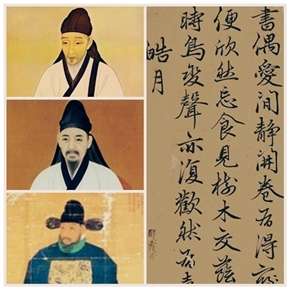 書偶愛閒静開卷有得
便欣然忘食見樹木交蔭
時鳥變聲亦復歡然有喜
皓月